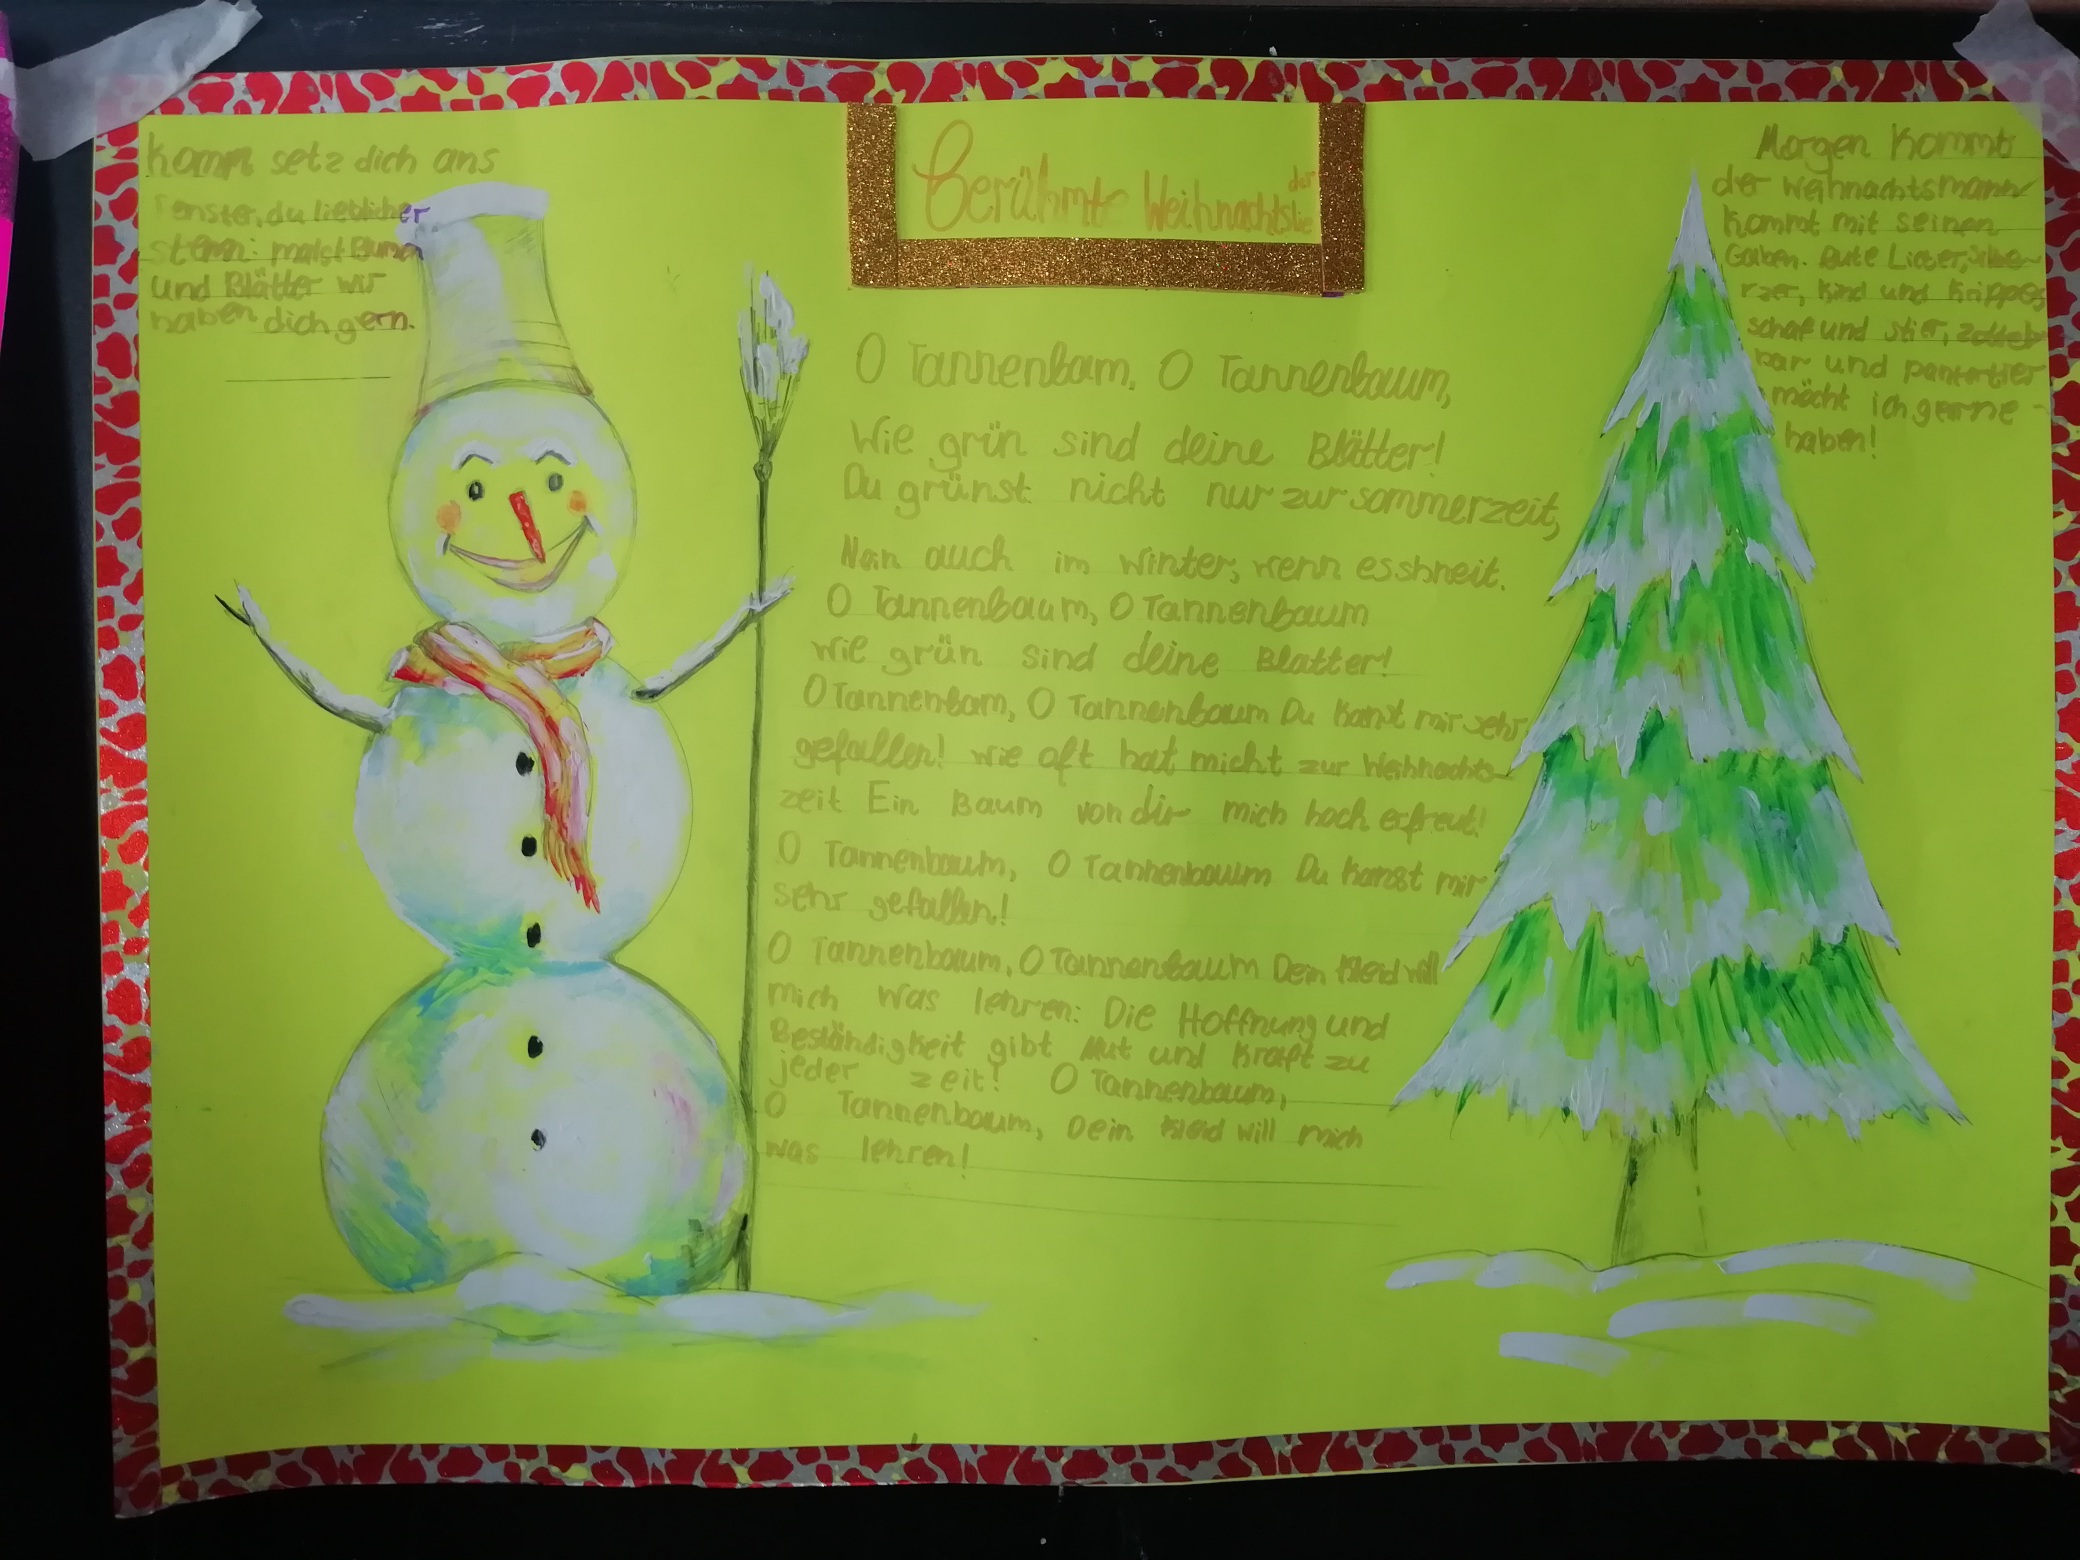 Berühmte Weihnachtslie
der
Komm setz dich ans
Fenster, du lieblicher
stern: malst Blumen
und Blätter wir
haben dich gern.
O Tannenbam, O Tannenbaum,
Wie grün sind deine Blätter!
Du grünst nicht nur zur sommerzeit,
Nein auch im Winter, wenn essbneit.
O Tannenbaum, O Tannenbaum
Wie grün sind deine Blatter!
O Tannenbam, O Tannenbaum Du kanst mir sehr
gefallen! Wie oft hat micht zur Weihnachts-
zeit Ein Baum von dir mich hoch erfreut!
O Tannenbaum, O Tannenbaum Du kanst mir
sehr gefallen!
O Tannenbaum, O Tannenbaum Dein kleid will
mich was lehren: Die Hoffnung und
Beständigkeit gibt Mut und Kraft zu
jeder zeit! O Tannenbaum,
O Tannenbaum, Dein kleid will mich
was lehren!
Morgen Kommt
der Weihnachtsmann
Kommt mit seinen
Gaben. Bute Licter,
rzer, Kind und Krippe,
schaf und stier,
bar und pantertier
möcht ich gerne
haben!